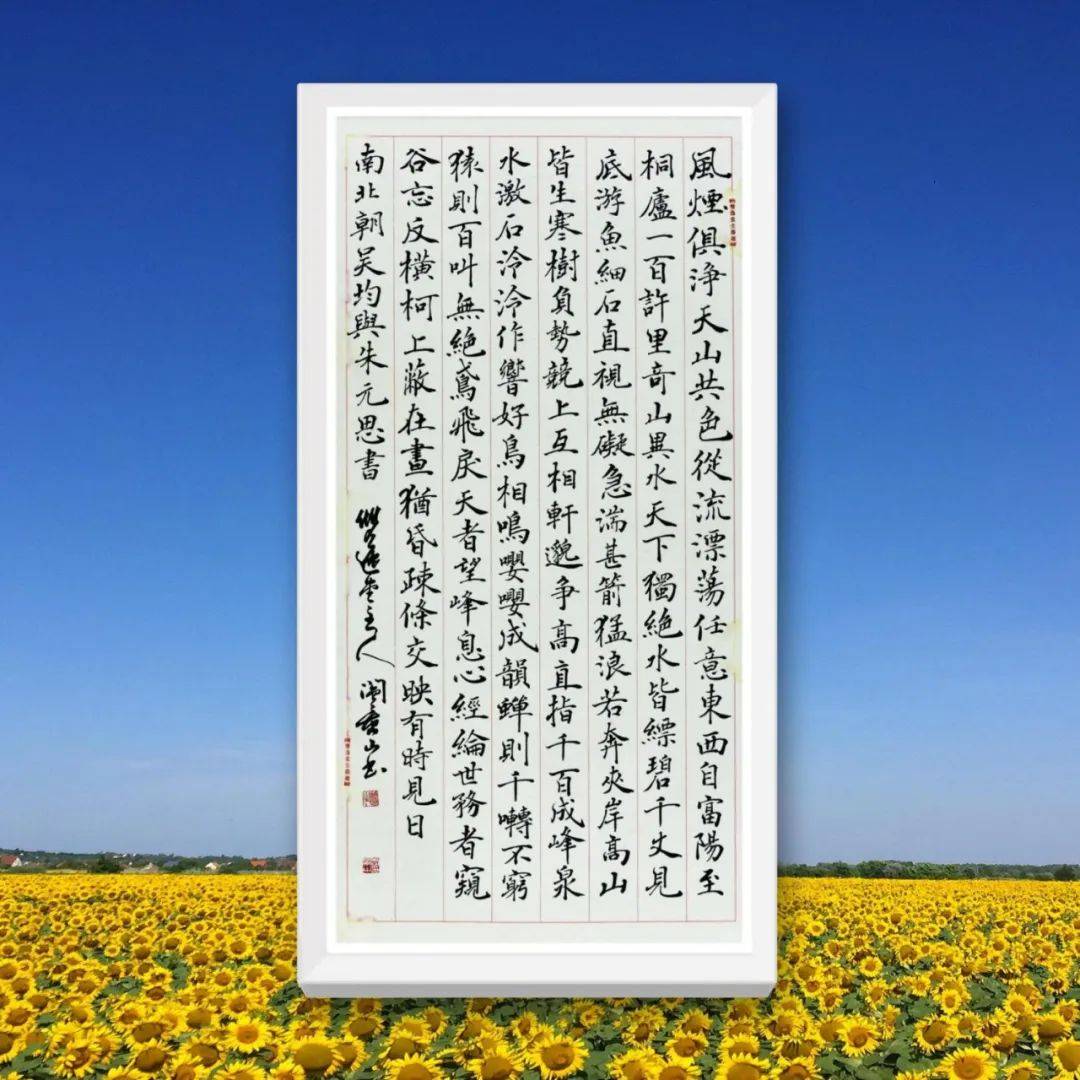 風煙俱淨天山共色從流漂蕩任意東西自富陽至
桐廬一百許里奇山異水天下獨絶水皆縹碧千丈見
底游魚細石直視無礙急湍甚箭猛浪若奔夾岸高山
皆生寒樹負勢競上互相軒邈争高直指千百成峰泉
水激石泠泠作響好鳥相鳴嚶嚶成韻蟬則千囀不窮
猿則百叫無絶鳶飛戾天者望峰息心經綸世務者窺
谷忘反横柯上蔽在晝猶昏疎條交映有時見日
南北朝吴均與朱元思書 主人 山书